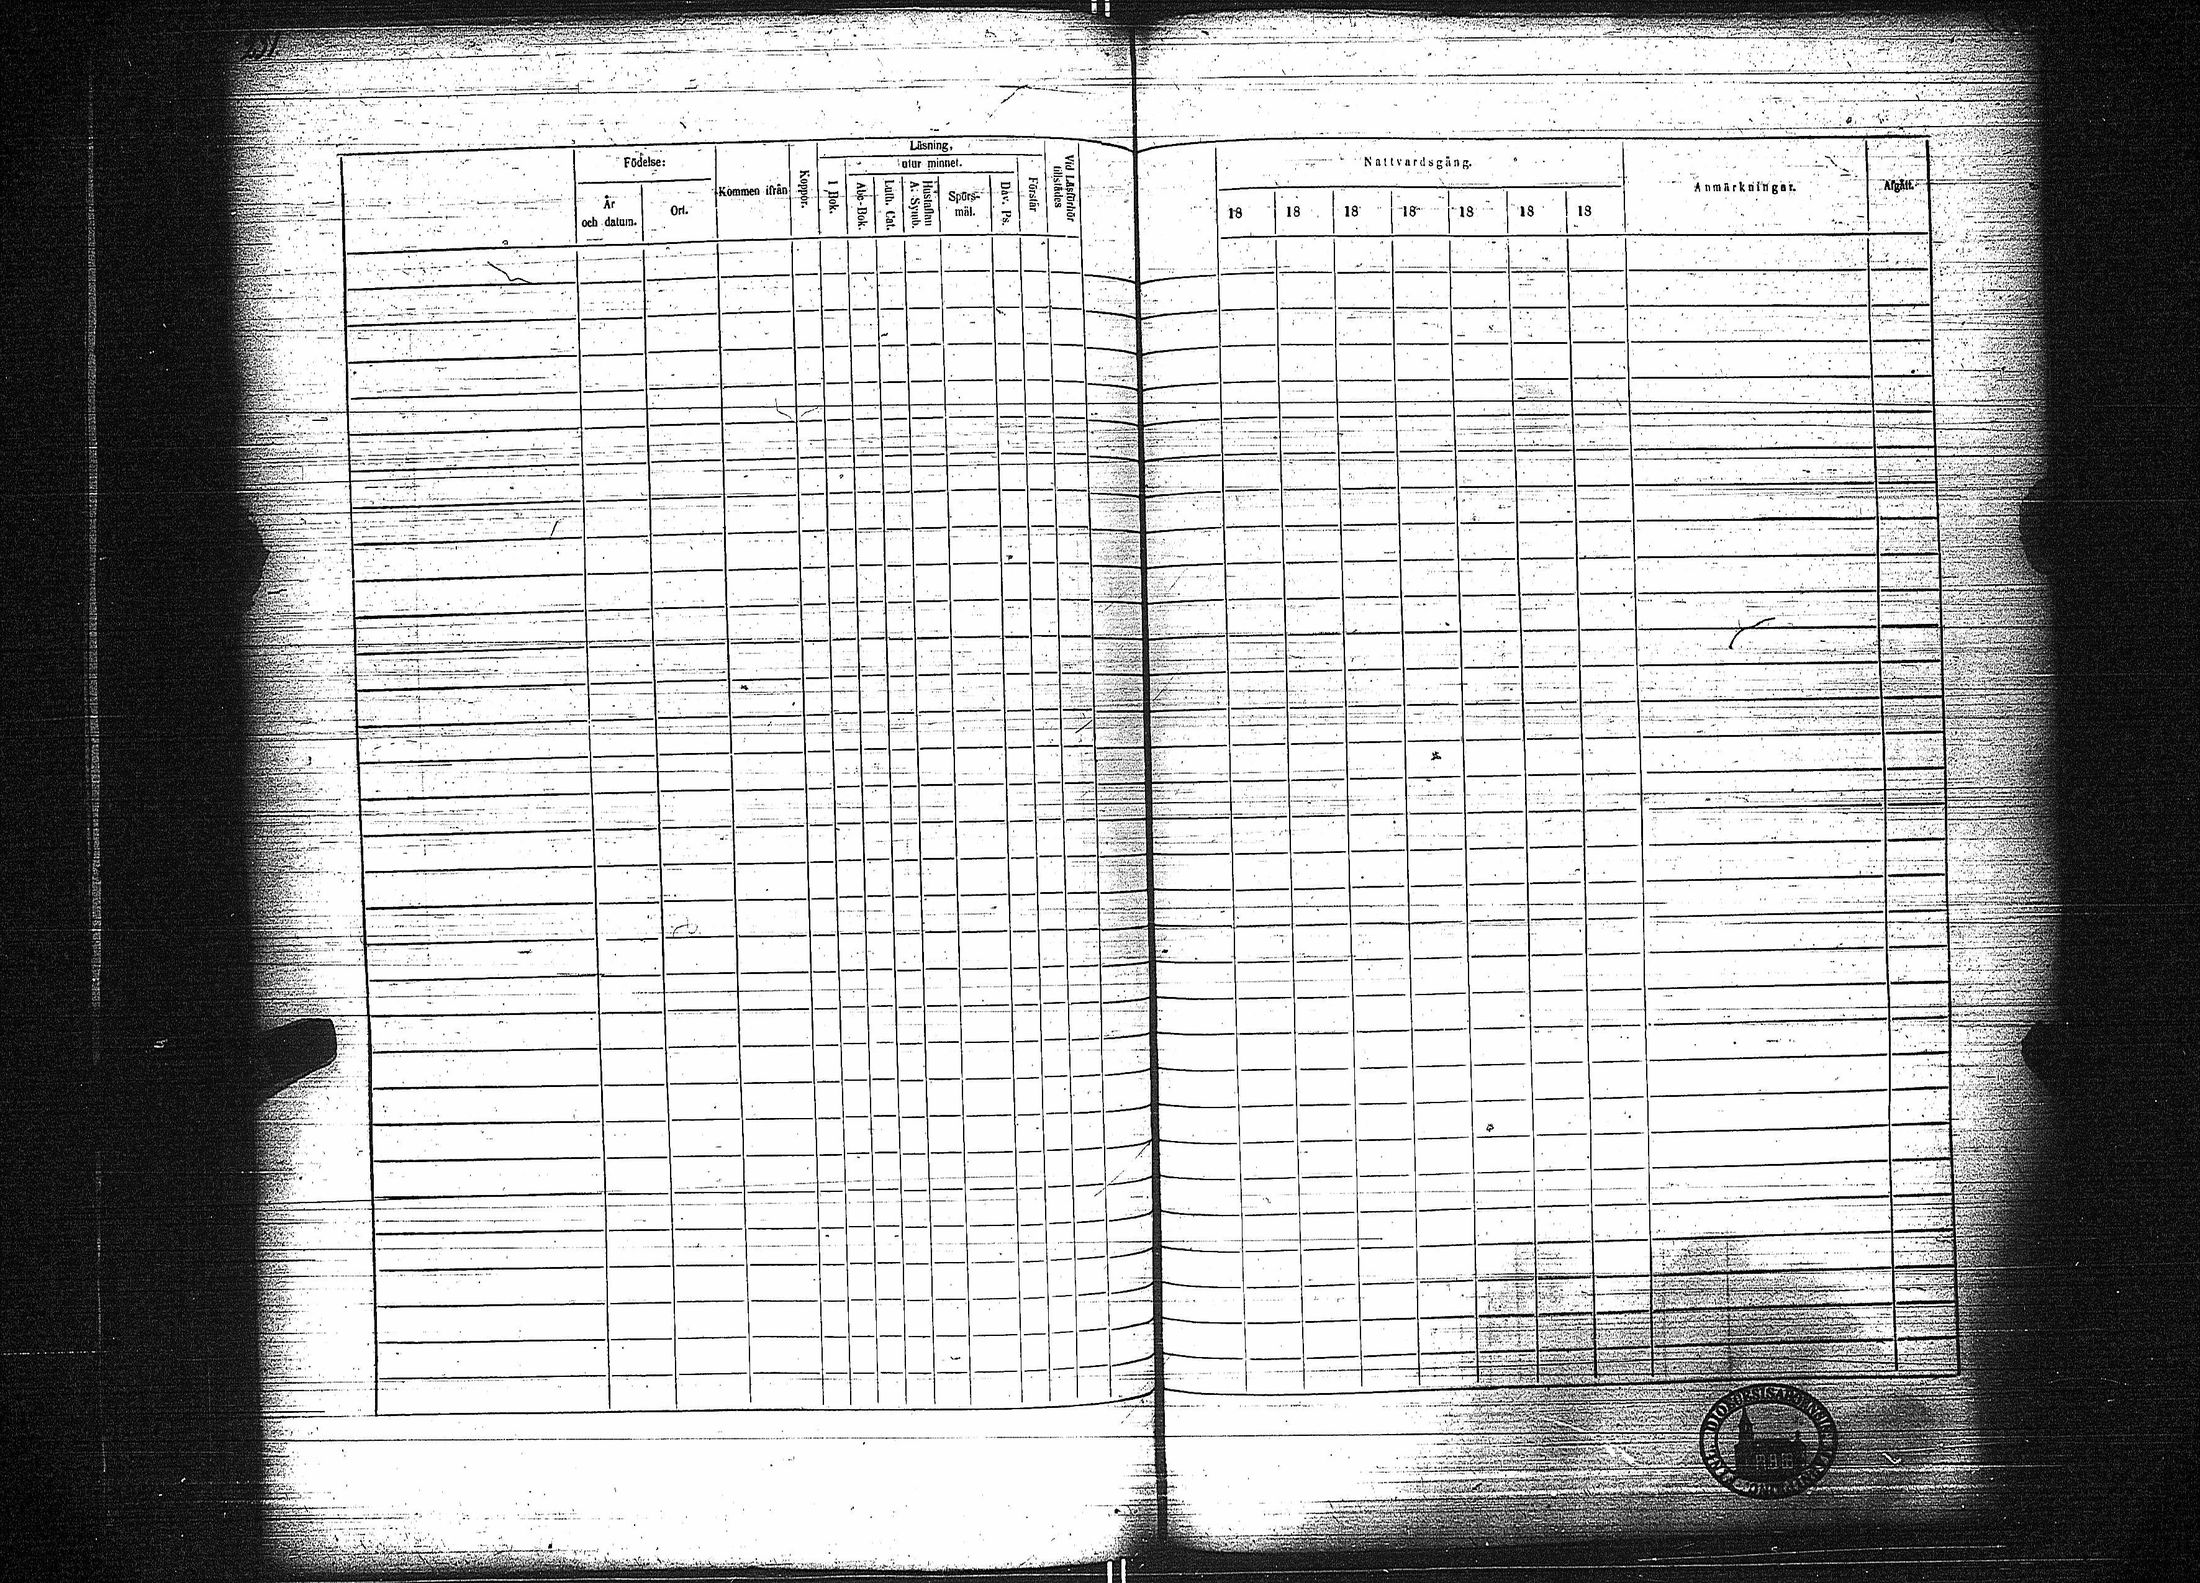 Födelse:
År
och datum.
Ort.
Kommen ifrån
Koppor.
Läsning,
I Bok.
utur minnet.
Abc-Bok.
Luth. Cat.
Hustaflan
A. Symb.
Spörs-
mål.
Dav. Ps.
Förstår
Vid Läsförhör
tillstädes
Nattvardsgång.
18 18 18 18 18 18 18
Anmärkningar.
Afgått.